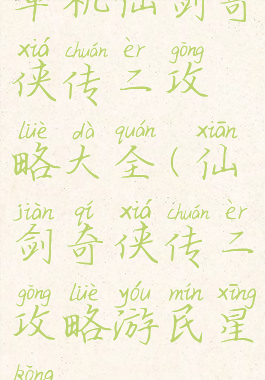 单机仙剑奇
xiá chuán èr gōng
侠传二攻
lüè dà quán xiān
略大全(仙
jiàn qí xiá chuán èr
剑奇侠传二
gōng lüè yóu mín xīng
攻略游民星
kōng